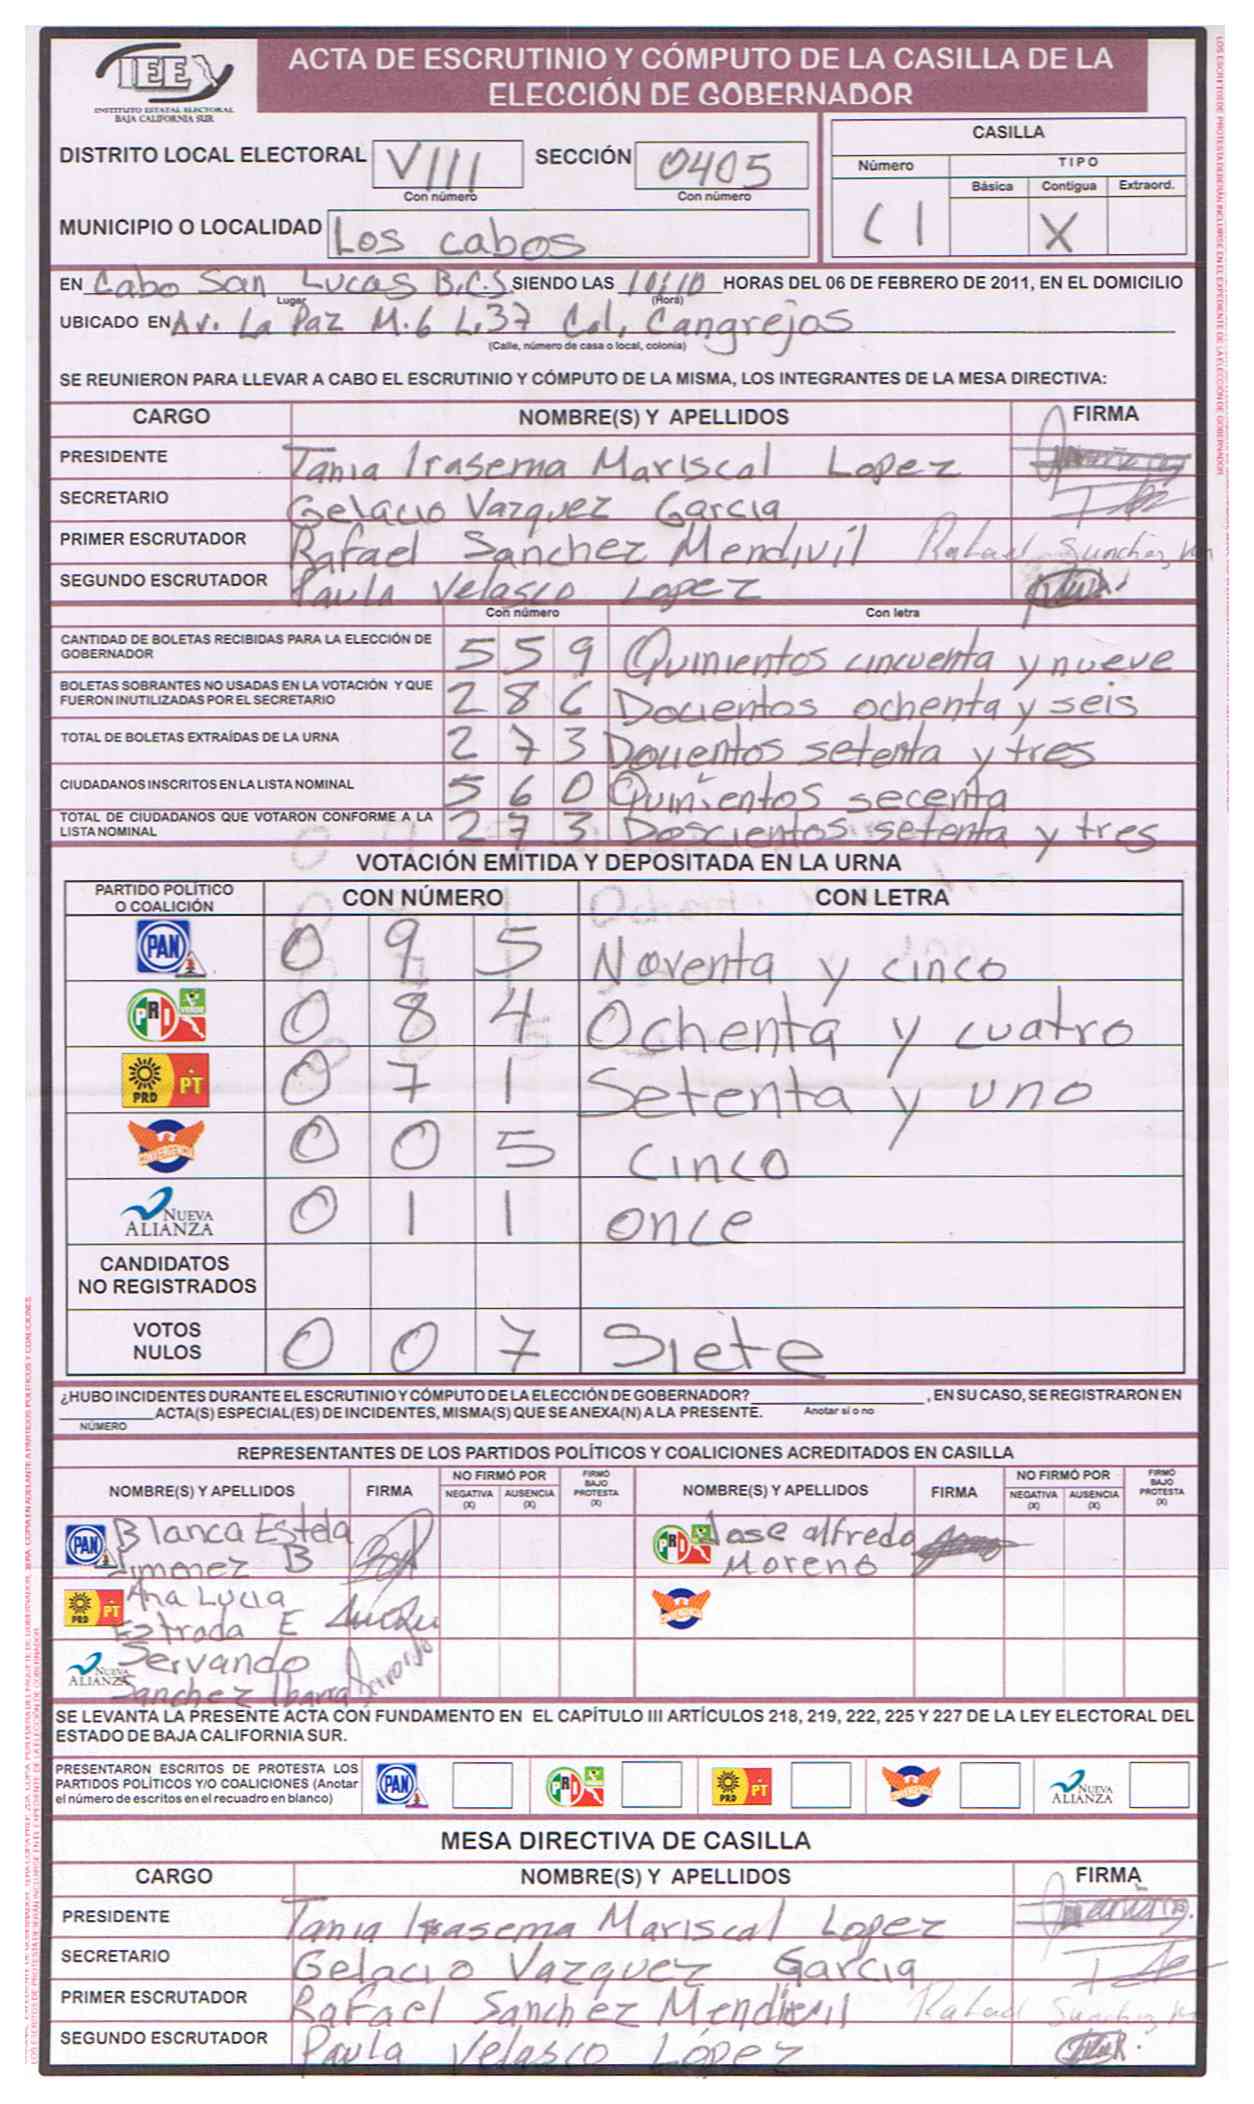 IEE
INSTITUTO ESTATAL ELECTORAL
BAJA CALIFORNIA SUR
ACTA DE ESCRUTINIO Y CÓMPUTO DE LA CASILLA DE LA
ELECCIÓN DE GOBERNADOR
DISTRITO LOCAL ELECTORAL VIII SECCIÓN 0405
Con número Con número
MUNICIPIO O LOCALIDAD Los cabos
CASILLA
Número TIPO
Básica Contigua Extraord.
C1 X
EN Cabo San Lucas B.C.S SIENDO LAS 10:10 HORAS DEL 06 DE FEBRERO DE 2011, EN EL DOMICILIO
Lugar (Hora)
UBICADO EN Av. La Paz M.6 L.37 Col. Cangrejos
(Calle, número de casa o local, colonia)
SE REUNIERON PARA LLEVAR A CABO EL ESCRUTINIO Y CÓMPUTO DE LA MISMA, LOS INTEGRANTES DE LA MESA DIRECTIVA:
CARGO NOMBRE(S) Y APELLIDOS FIRMA
PRESIDENTE Tania Irasema Mariscal Lopez
SECRETARIO Gelacio Vazquez Garcia
PRIMER ESCRUTADOR Rafael Sanchez Mendivil Rafael Sanchez M
SEGUNDO ESCRUTADOR Paula Velasco Lopez
Con número Con letra
CANTIDAD DE BOLETAS RECIBIDAS PARA LA ELECCIÓN DE
GOBERNADOR 559 Quinientos cincuenta y nueve
BOLETAS SOBRANTES NO USADAS EN LA VOTACIÓN Y QUE
FUERON INUTILIZADAS POR EL SECRETARIO 286 Docientos ochenta y seis
TOTAL DE BOLETAS EXTRAÍDAS DE LA URNA 273 Docientos setenta y tres
CIUDADANOS INSCRITOS EN LA LISTA NOMINAL 560 Quinientos secenta
TOTAL DE CIUDADANOS QUE VOTARON CONFORME A LA
LISTA NOMINAL 273 Doscientos setenta y tres
VOTACIÓN EMITIDA Y DEPOSITADA EN LA URNA
PARTIDO POLÍTICO
O COALICIÓN CON NÚMERO CON LETRA
PAN 0 9 5 Noventa y cinco
PRI VERDE 0 8 4 Ochenta y cuatro
PRD PT 0 7 1 Setenta y uno
CONVERGENCIA 0 0 5 cinco
NUEVA ALIANZA 0 1 1 once
CANDIDATOS
NO REGISTRADOS
VOTOS
NULOS 0 0 7 Siete
¿HUBO INCIDENTES DURANTE EL ESCRUTINIO Y CÓMPUTO DE LA ELECCIÓN DE GOBERNADOR? , EN SU CASO, SE REGISTRARON EN
ACTA(S) ESPECIAL(ES) DE INCIDENTES, MISMA(S) QUE SE ANEXA(N) A LA PRESENTE. Anotar sí o no
NÚMERO
REPRESENTANTES DE LOS PARTIDOS POLÍTICOS Y COALICIONES ACREDITADOS EN CASILLA
NOMBRE(S) Y APELLIDOS FIRMA NO FIRMÓ POR NEGATIVA (X) AUSENCIA (X) FIRMÓ BAJO PROTESTA (X) NOMBRE(S) Y APELLIDOS FIRMA NO FIRMÓ POR NEGATIVA (X) AUSENCIA (X) FIRMÓ BAJO PROTESTA (X)
PAN Blanca Estela
Jimenez B
PRI Jose alfredo
Moreno
PRD PT Ana Lucia
Estrada E
NUEVA ALIANZA Servando
Sanchez Ibarra Servando
SE LEVANTA LA PRESENTE ACTA CON FUNDAMENTO EN EL CAPÍTULO III ARTÍCULOS 218, 219, 222, 225 Y 227 DE LA LEY ELECTORAL DEL
ESTADO DE BAJA CALIFORNIA SUR.
PRESENTARON ESCRITOS DE PROTESTA LOS
PARTIDOS POLÍTICOS Y/O COALICIONES (Anotar
el número de escritos en el recuadro en blanco)
PAN PRI PRD PT NUEVA ALIANZA
MESA DIRECTIVA DE CASILLA
CARGO NOMBRE(S) Y APELLIDOS FIRMA
PRESIDENTE Tania Irasema Mariscal Lopez
SECRETARIO Gelacio Vazquez Garcia
PRIMER ESCRUTADOR Rafael Sanchez Mendivil Rafael Sanchez M
SEGUNDO ESCRUTADOR Paula Velasco López
LOS ESCRITOS DE PROTESTA DEBERÁN INCLUIRSE EN EL EXPEDIENTE DE LA ELECCIÓN DE GOBERNADOR